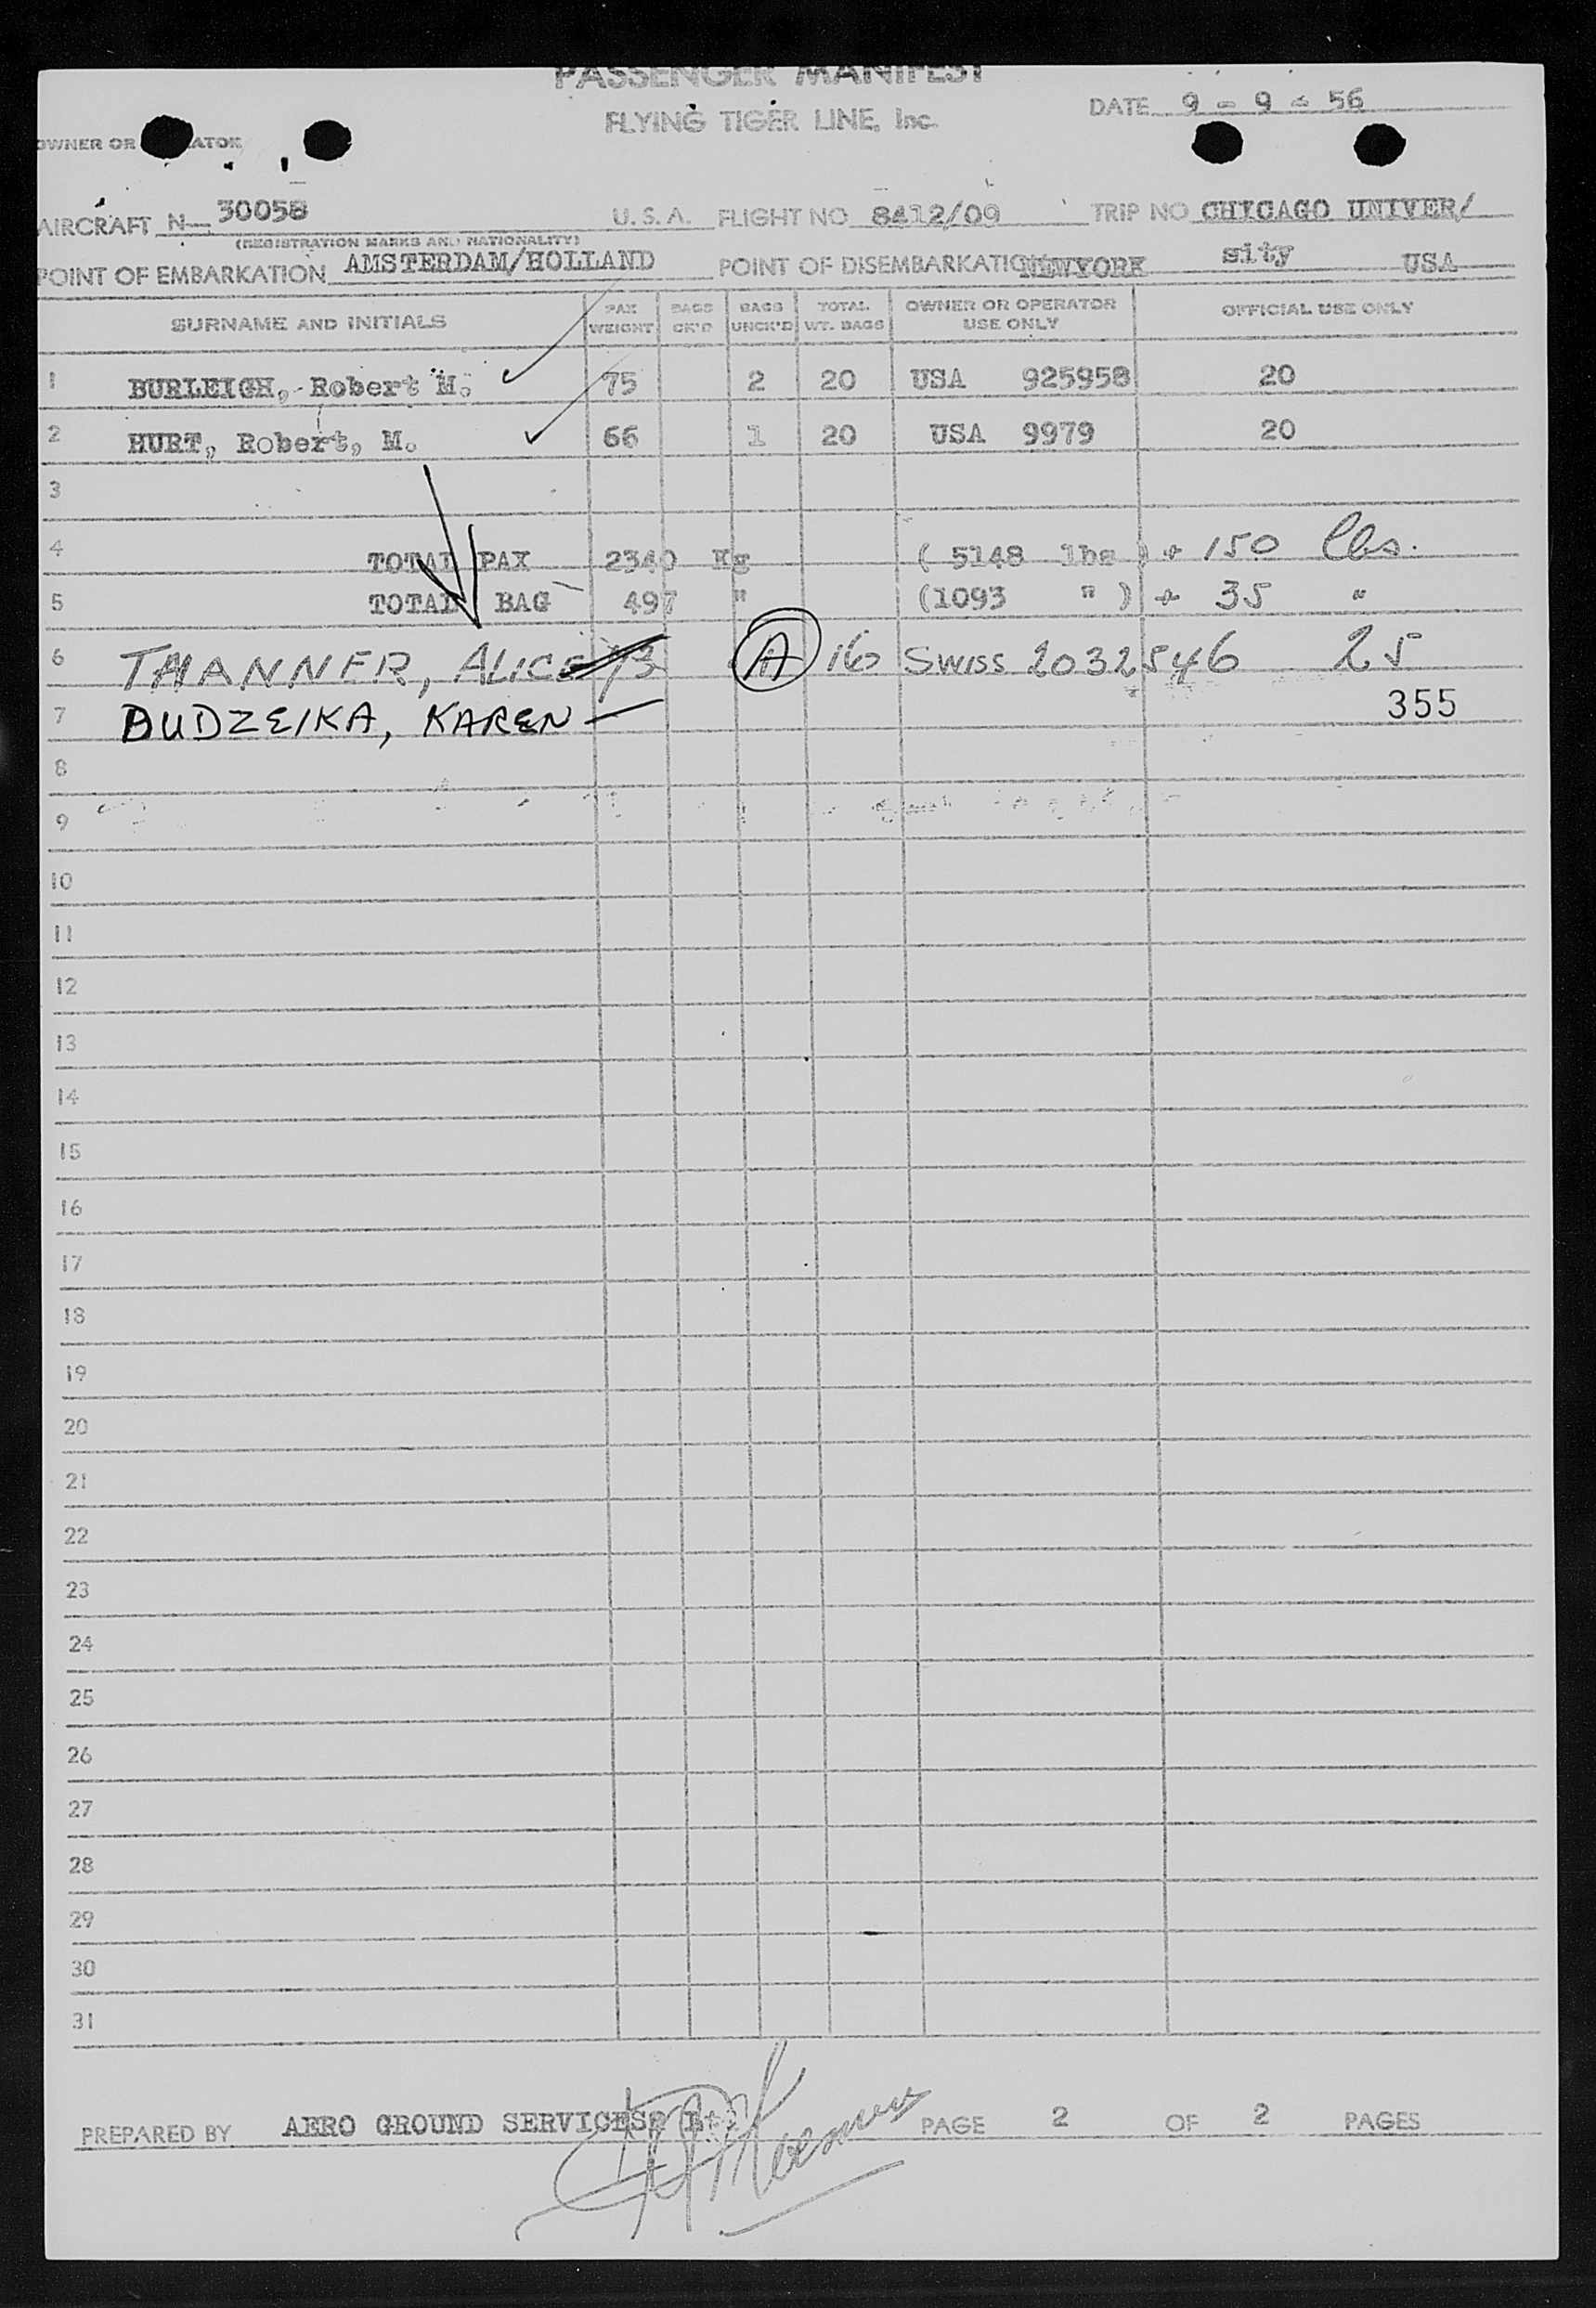 PASSENGER MANIFEST
FLYING TIGER LINE, Inc.
DATE 9 - 9 - 56
OWNER OR
AIRCRAFT N 30058 U.S.A. FLIGHT NO 8412/09 TRIP NO CHICAGO UNIVER/
(REGISTRATION MARKS AND NATIONALITY)
POINT OF EMBARKATION AMSTERDAM/HOLLAND POINT OF DISEMBARKATION NEWYORK sity USA
SURNAME AND INITIALS PAX WEIGHT BAGS CK'D BAGS UNCK'D TOTAL WT. BAGS OWNER OR OPERATOR USE ONLY OFFICIAL USE ONLY
1 BURLEIGH, Robert M. 75 2 20 USA 925958 20
2 HURT, Robert, M. 66 1 20 USA 9979 20
3
4 TOTAL PAX 2340 Kg ( 5148 lbs ) + 150 lbs.
5 TOTAL BAG 497 " (1093 " ) + 35 "
6 THANNER, ALICE 73 A 16 SWISS 2032546 25
7 BUDZEIKA, KAREN 355
8
9
10
11
12
13
14
15
16
17
18
19
20
21
22
23
24
25
26
27
28
29
30
31
PREPARED BY AERO GROUND SERVICES PAGE 2 OF 2 PAGES